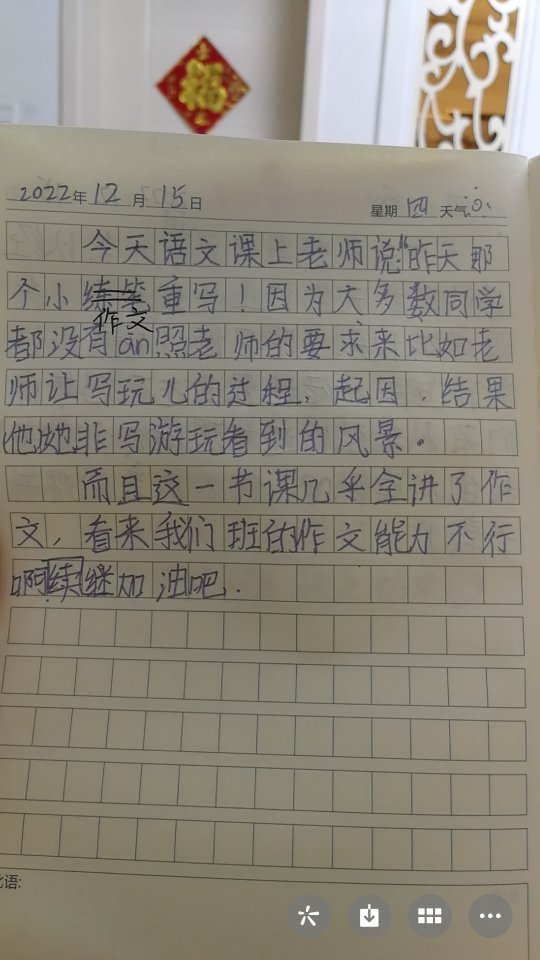 福
2022年 12 月 15 日
星期 四 天气
今天语文课上老师说:“昨天那
个小练笔重写！因为大多数同学
作文
都没有àn照老师的要求来比如老
师让写玩儿的过程、起因、结果
他她非写游玩看到的风景。
而且这一节课几乎全讲了作
文，看来我们班的作文能力不行
啊续继加油吧.
语: